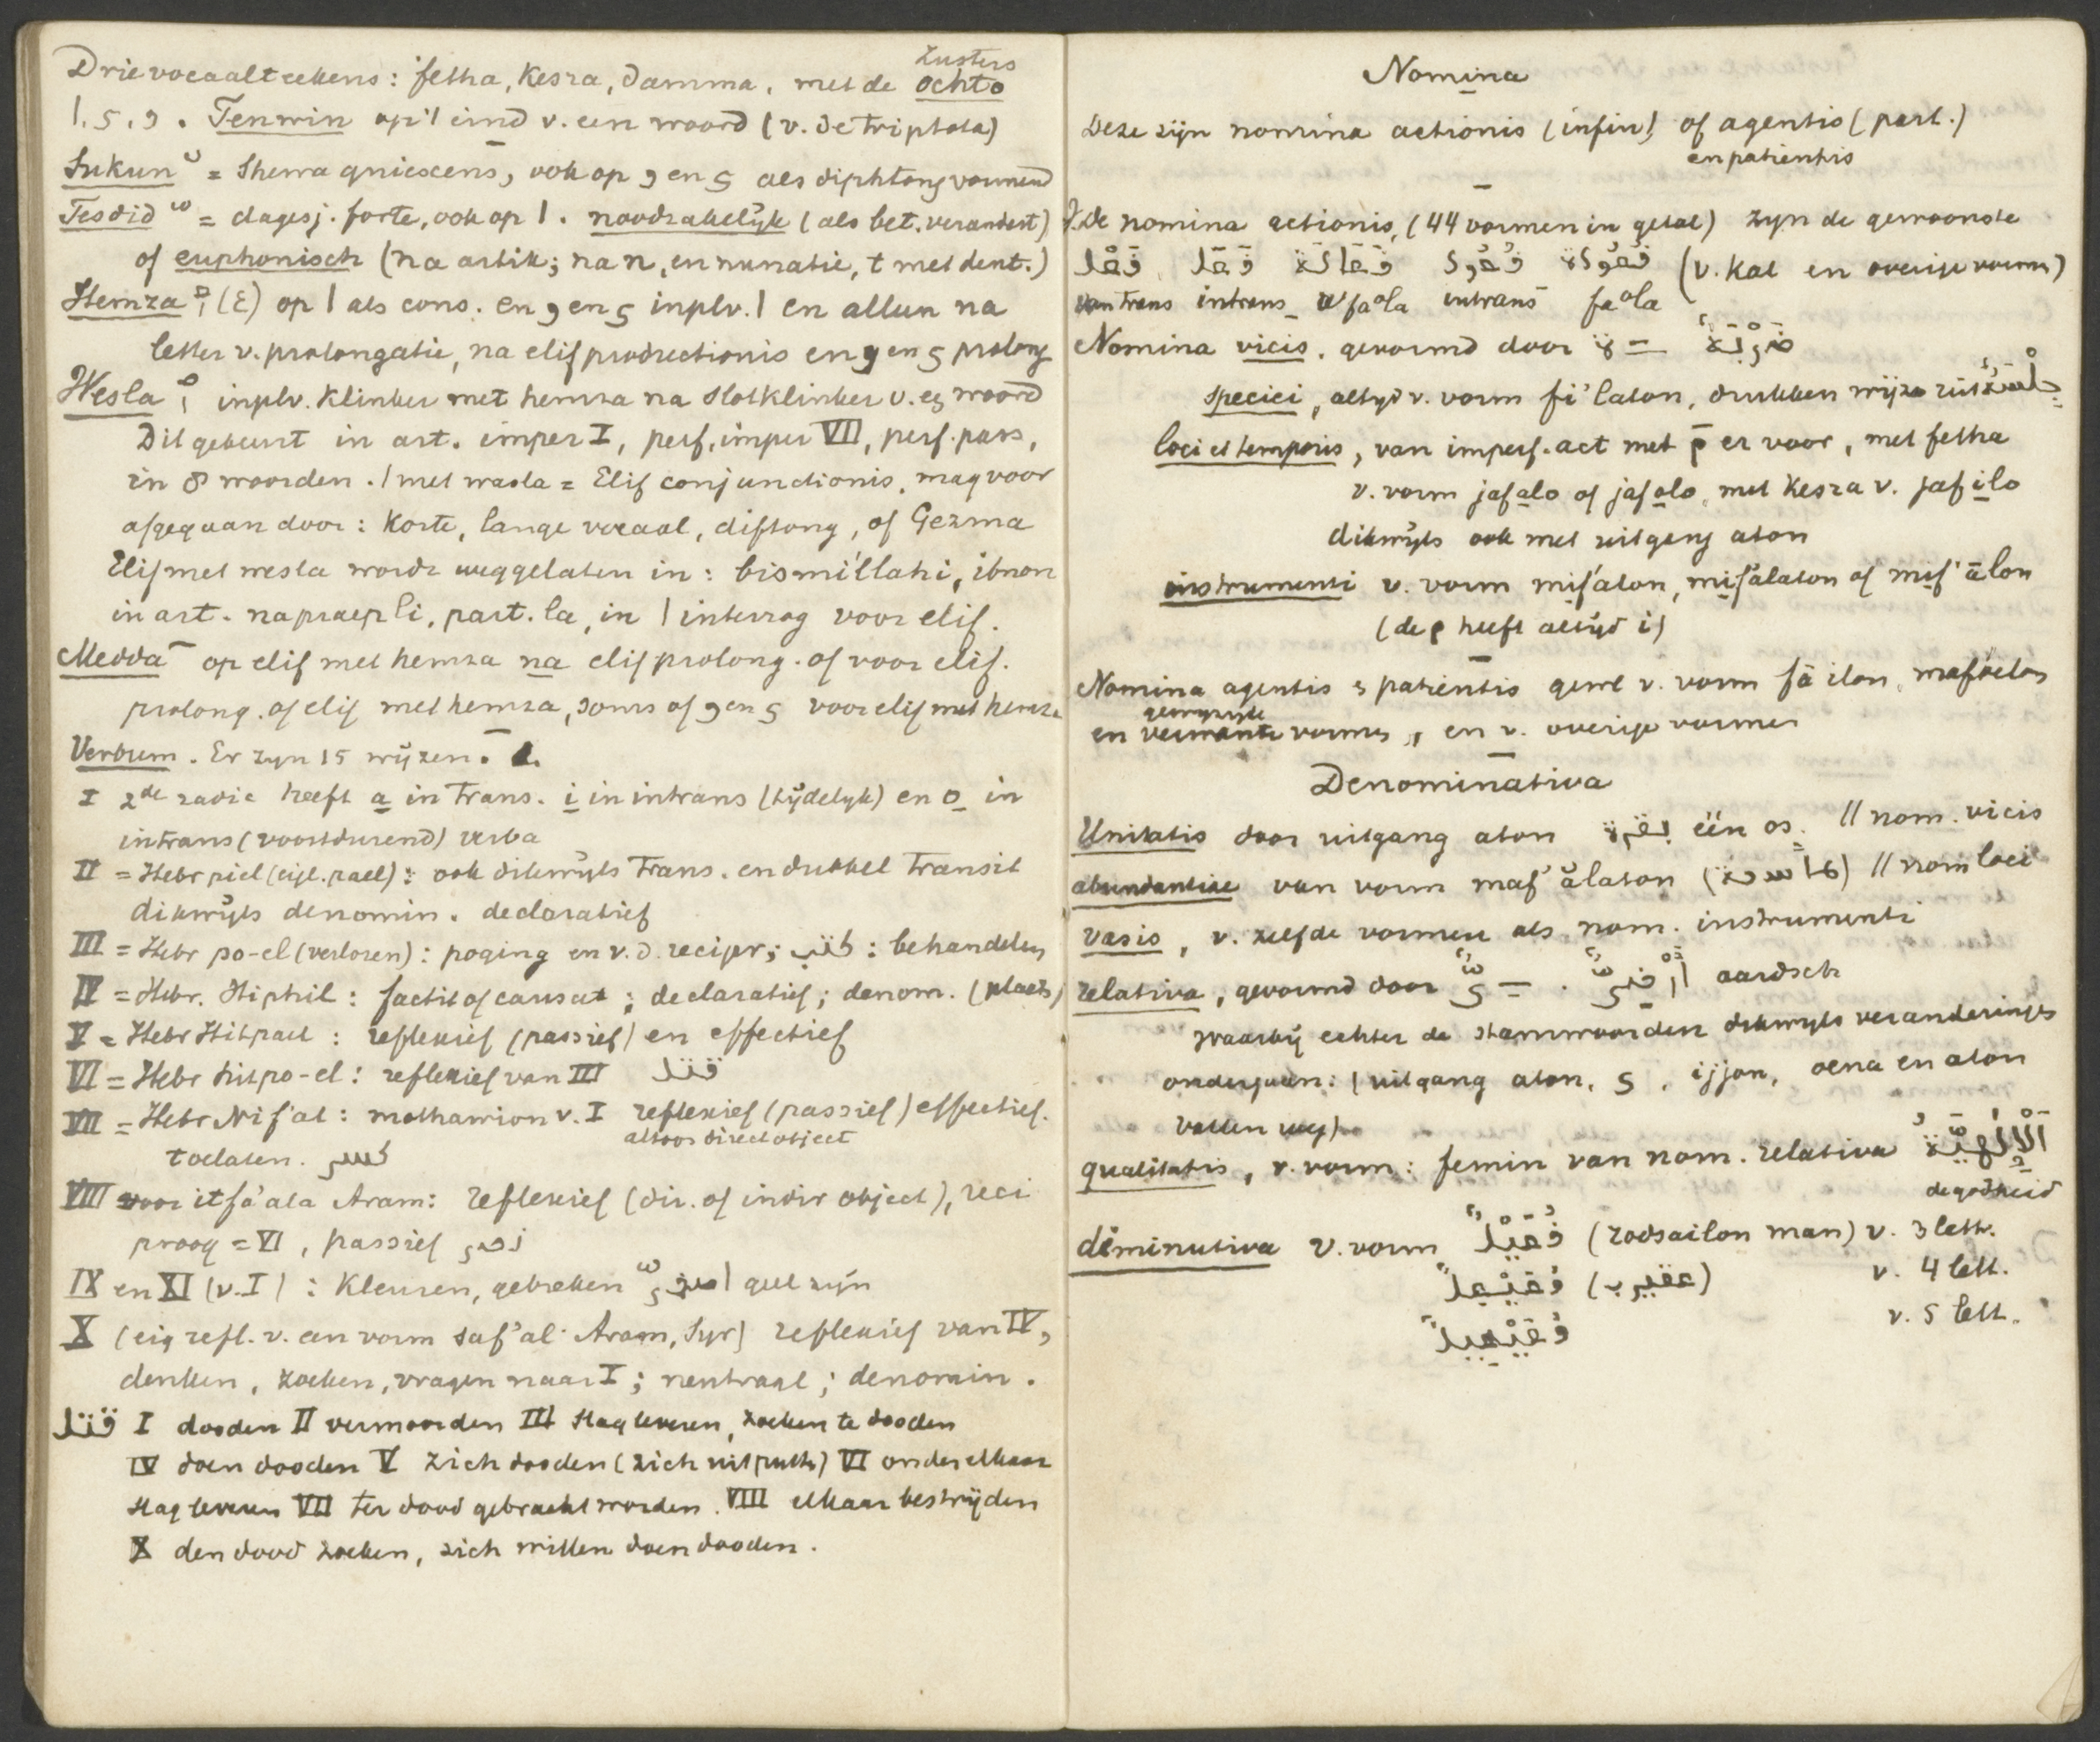 Drie vocaalteekens: fetha, Kesra, damma, met de ochto
zusters
ا, ى, و. Tenwin op 't eind v. een woord (v. de triptota)
Sukun = Shewa quiescens, ook op و en ى als diphtong vormend
Tesdid = dagesj. forte, ook op ا. noodzakelijk (als bet. verandert)
of euphonisch (na artik; na n, en nunatie, t met dent.)
Hemza (ع) op ا als cons. en و en ى inplv. ا en alleen na
letter v. prolongatie, na elif productionis en و en ى prolong
Wesla inplv. Klinker met hemza na slotklinker v. eg woord
Dit gebeurt in art. imper I, perf, imper VII, perf. pass,
in 8 woorden. ا met wasla = Elif conjunctionis, mag voor
afgegaan door: Korte, lange vocaal, diftong, of Gezma
Elif met wesla wordt weggelaten in: bismi'llahi, ibnon
in art. na praep li, part. la, in ا interrog voor elif.
Medda op elif met hemza na elif prolong. of voor elif.
prolong. of elif met hemza, soms of و en ى voor elif met hemza
Verbum. Er zyn 15 wijzen.
I 2de radic heeft a in trans. i in intrans (tijdelyk) en o in
intrans (voortdurend) verba
II = Hebr piel (eigl. pael): ook dikwijls Trans. en dubbel transit
dikwijls denomin. declaratief
III = Hebr po-el (verloren): poging en v.d. recipr; كتب: behandelen
IV = Hebr. Hiphil: factit of causat; declaratief; denom. (plaats)
V = Hebr Hitpael: reflexief (passief) en effectief
VI = Hebr hitpo-el: reflexief van III قتل
VII = Hebr Nif'al: mothawion v. I reflexief (passief) effectief.
altoos direct object
toelaten. كسر
VIII voor itfa'ala Aram: reflexief (dir. of indir object), reci
proog = VI, passief نصر
IX en XI (v. I): Kleuren, gebreken اصفرّ geel zijn
X (eig refl. v. een vorm saf'al Aram, Syr) reflexief van IV,
denken, zoeken, vragen naar I; neutraal; denomin.
قتل I dooden II vermoorden III slag leveren, zoeken te dooden
IV doen dooden V zich dooden (zich uitputte) VI onder elkaar
slag leveren VII ter dood gebracht worden. VIII elkaar bestrijden
X den dood zoeken, zich willen doen dooden.
Nomina
Deze zijn nomina actionis (infin) of agentis (part.)
en patientis
De nomina actionis, (44 vormen in getal) zyn de gewoonste
فَعْل فَعَل فَعَالَة فُعُول فُعُولَة (v. Kal en overige vorms)
van trans intrans fa°la intrans fa°la
Nomina vicis, gevormd door ـَة ضَرْبَةٌ
speciei, altyd v. vorm fi'laton, drukken wijze uit جِلْسَةٌ
loci et temporis, van imperf. act met م er voor, met fetha
v. vorm jafalo of jafolo, met Kesra v. jafilo
dikwyls ook met uitgang aton
instrumenti v. vorm mif'alon, mif'alaton of mif'ālon
(de م heeft altijd i)
Nomina agentis & patientis gewl v. vorm fā'ilon, maf'oelon
en gewyzigde vormen, en v. overige vormen
Denominativa
Unitatis door uitgang aton بقرة één os. // nom. vicis
abundantiae van vorm maf'alaton (مأسدة) // nom loci
vasis, v. zelfde vormen als nom. instrumenti
relativa, gevormd door ـِىٌّ. أَرْضِىٌّ aardsch
waarbij echter de stamwoorden dikwyls veranderinges
ondergaan: (uitgang aton, ى, ijjon, oena en aton
vallen weg)
qualitatis, v. vorm: femin van nom. relativa اَلْإِلٰهِيَّةُ
de godheid
diminutiva v. vorm فُعَيْلٌ (rodsailon man) v. 3 lett.
فُعَيْعِلٌ (عقيرب) v. 4 lett.
فُعَيْعِيلٌ v. 5 lett.